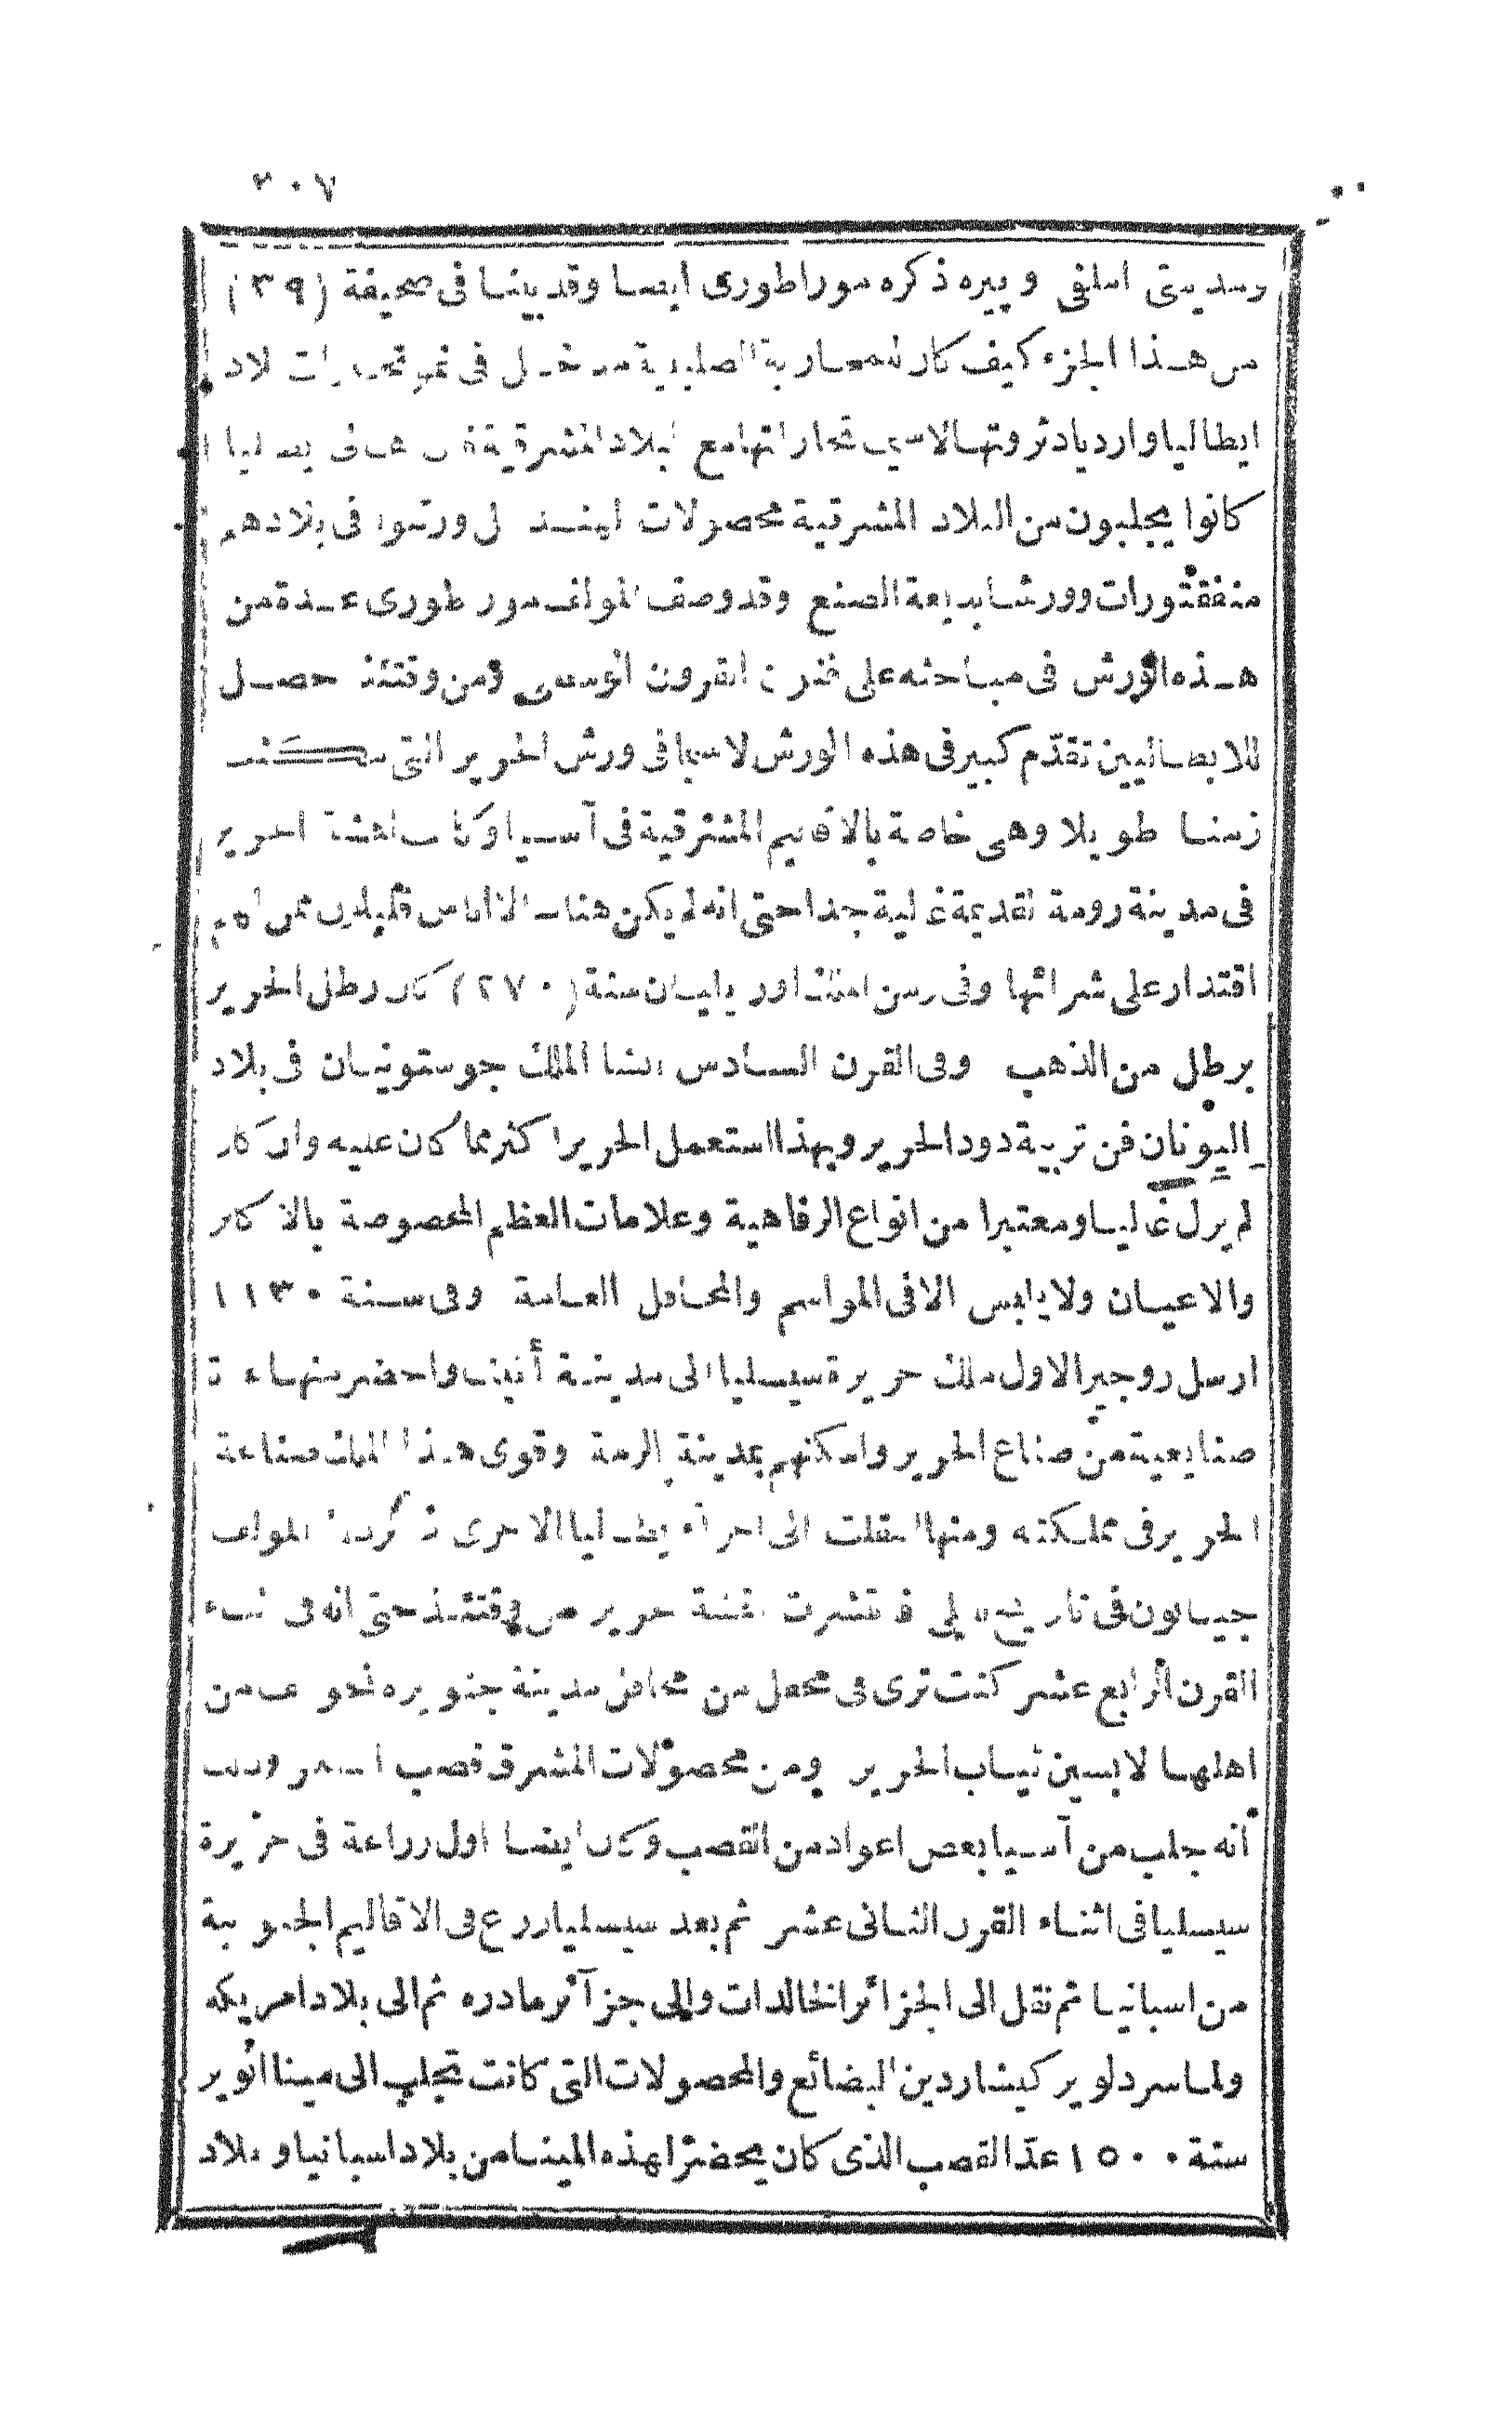 ٢٠٧
ومدينتى املفى وبيره ذكره موراطورى ايضا وقد بينا فى صحيفة (٣٩)
من هذا الجزء كيف كان للمحاربة الصليبية مدخل فى تجارات بلاد
ايطاليا وازدياد ثروتها لاسيما تجاراتها مع البلاد المشرقية
كانوا يجلبون من البلاد المشرقية محصولات الهند بل ورتبوا فى بلادهم
منفقثورات وورشا بديعة الصنع وقد وصف المؤلف موراطورى عدة من
هذه الورش فى مباحثه على القرون الوسطى ومن وقتئذ حصل
للايطاليين تقدّم كبير فى هذه الورش لاسيما فى ورش الحرير التى مكثت
زمنا طويلا وهى خاصة بالاقاليم المشرقية فى آسيا وكانت اقمشة الحرير
فى مدينة رومة القديمة غالية جدا حتى انه لم يكن هناك الا اناس قليلون ممن لهم
اقتدار على شرائها وفى زمن الملك اورليان سنة (٢٧٠) كان رطل الحرير
برطل من الذهب وفى القرن السادس انشا الملك جوستونيان فى بلاد
اليونان فن تربية دود الحرير وبهذا استعمل الحرير اكثر مما كان عليه وان كان
لم يزل غاليا ومعتبرا من انواع الرفاهية وعلامات العظم المخصوصة بالاكابر
والاعيان ولا يلبس الا فى المواسم والمحافل العامة وفى سنة ١١٣٠
ارسل روجير الاول ملك جزيرة سيسليا الى مدينة أتينه واحضر منها عدة
صنايعية من صناع الحرير واسكنهم بمدينة بالرمة وقوى هذا الملك صناعة
الحرير فى مملكته ومنها انتقلت الى اجزاء ايطاليا الاخرى ذكره المؤلف
جيانون فى تاريخ نابلى فانتشرت اقمشة الحرير من وقتئذ حتى انه فى اثناء
القرن الرابع عشر كنت ترى فى محفل من محافل مدينة جنويره نحو الف من
اهلها لابسين ثياب الحرير ومن محصولات المشرق قصب السكر وذلك
أنه جلب من آسيا بعض اعواد من القصب وكان ايضا اول زراعة فى جزيرة
سيسليا فى اثناء القرن الثانى عشر ثم بعد سيسليا زرع فى الاقاليم الجنوبية
من اسبانيا ثم نقل الى الجزائر الخالدات والى جزآئر مادره ثم الى بلاد امريكه
ولما سرد لوير كيشاردين البضائع والمحصولات التى كانت تجلب الى مينا انوير
سنة ١٥٠٠ عدّ القصب الذى كان يحضر لهذه المينا من بلاد اسبانيا وبلاد